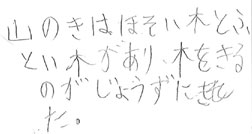 山のきはほそい木とふ
とい木があり、木をきる
のがじょうずにきて
た。